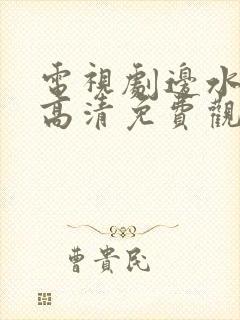 電視劇邊水
高清免費觀
曹貴民